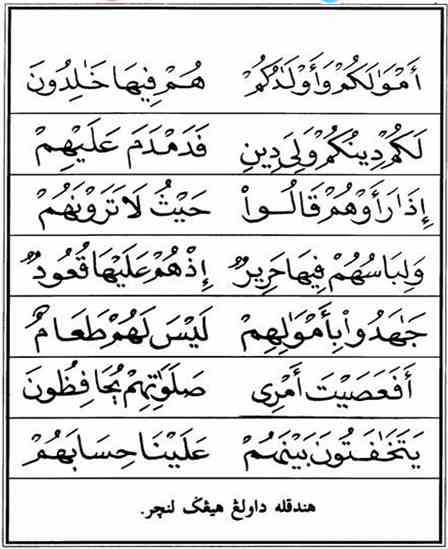 أَمْوَٰلُكُمْ وَأَوْلَٰدُكُمْ هُمْ فِيهَا خَٰلِدُونَ
لَكُمْ دِينُكُمْ وَلِىَ دِينِ فَدَمْدَمَ عَلَيْهِمْ
إِذَا رَأَوْهُمْ قَالُوا۟ حَيْثُ لَا تَرَوْنَهُمْ
وَلِبَاسُهُمْ فِيهَا حَرِيرٌ إِذْ هُمْ عَلَيْهَا قُعُودٌ
جَٰهَدُوا۟ بِأَمْوَٰلِهِمْ لَيْسَ لَهُمْ طَعَامٌ
أَفَعَصَيْتَ أَمْرِى صَلَوَٰتِهِمْ يُحَافِظُونَ
يَتَخَٰفَتُونَ بَيْنَهُمْ عَلَيْنَا حِسَابَهُمْ
هندقله داولڠ هيڠݢ لنچر.